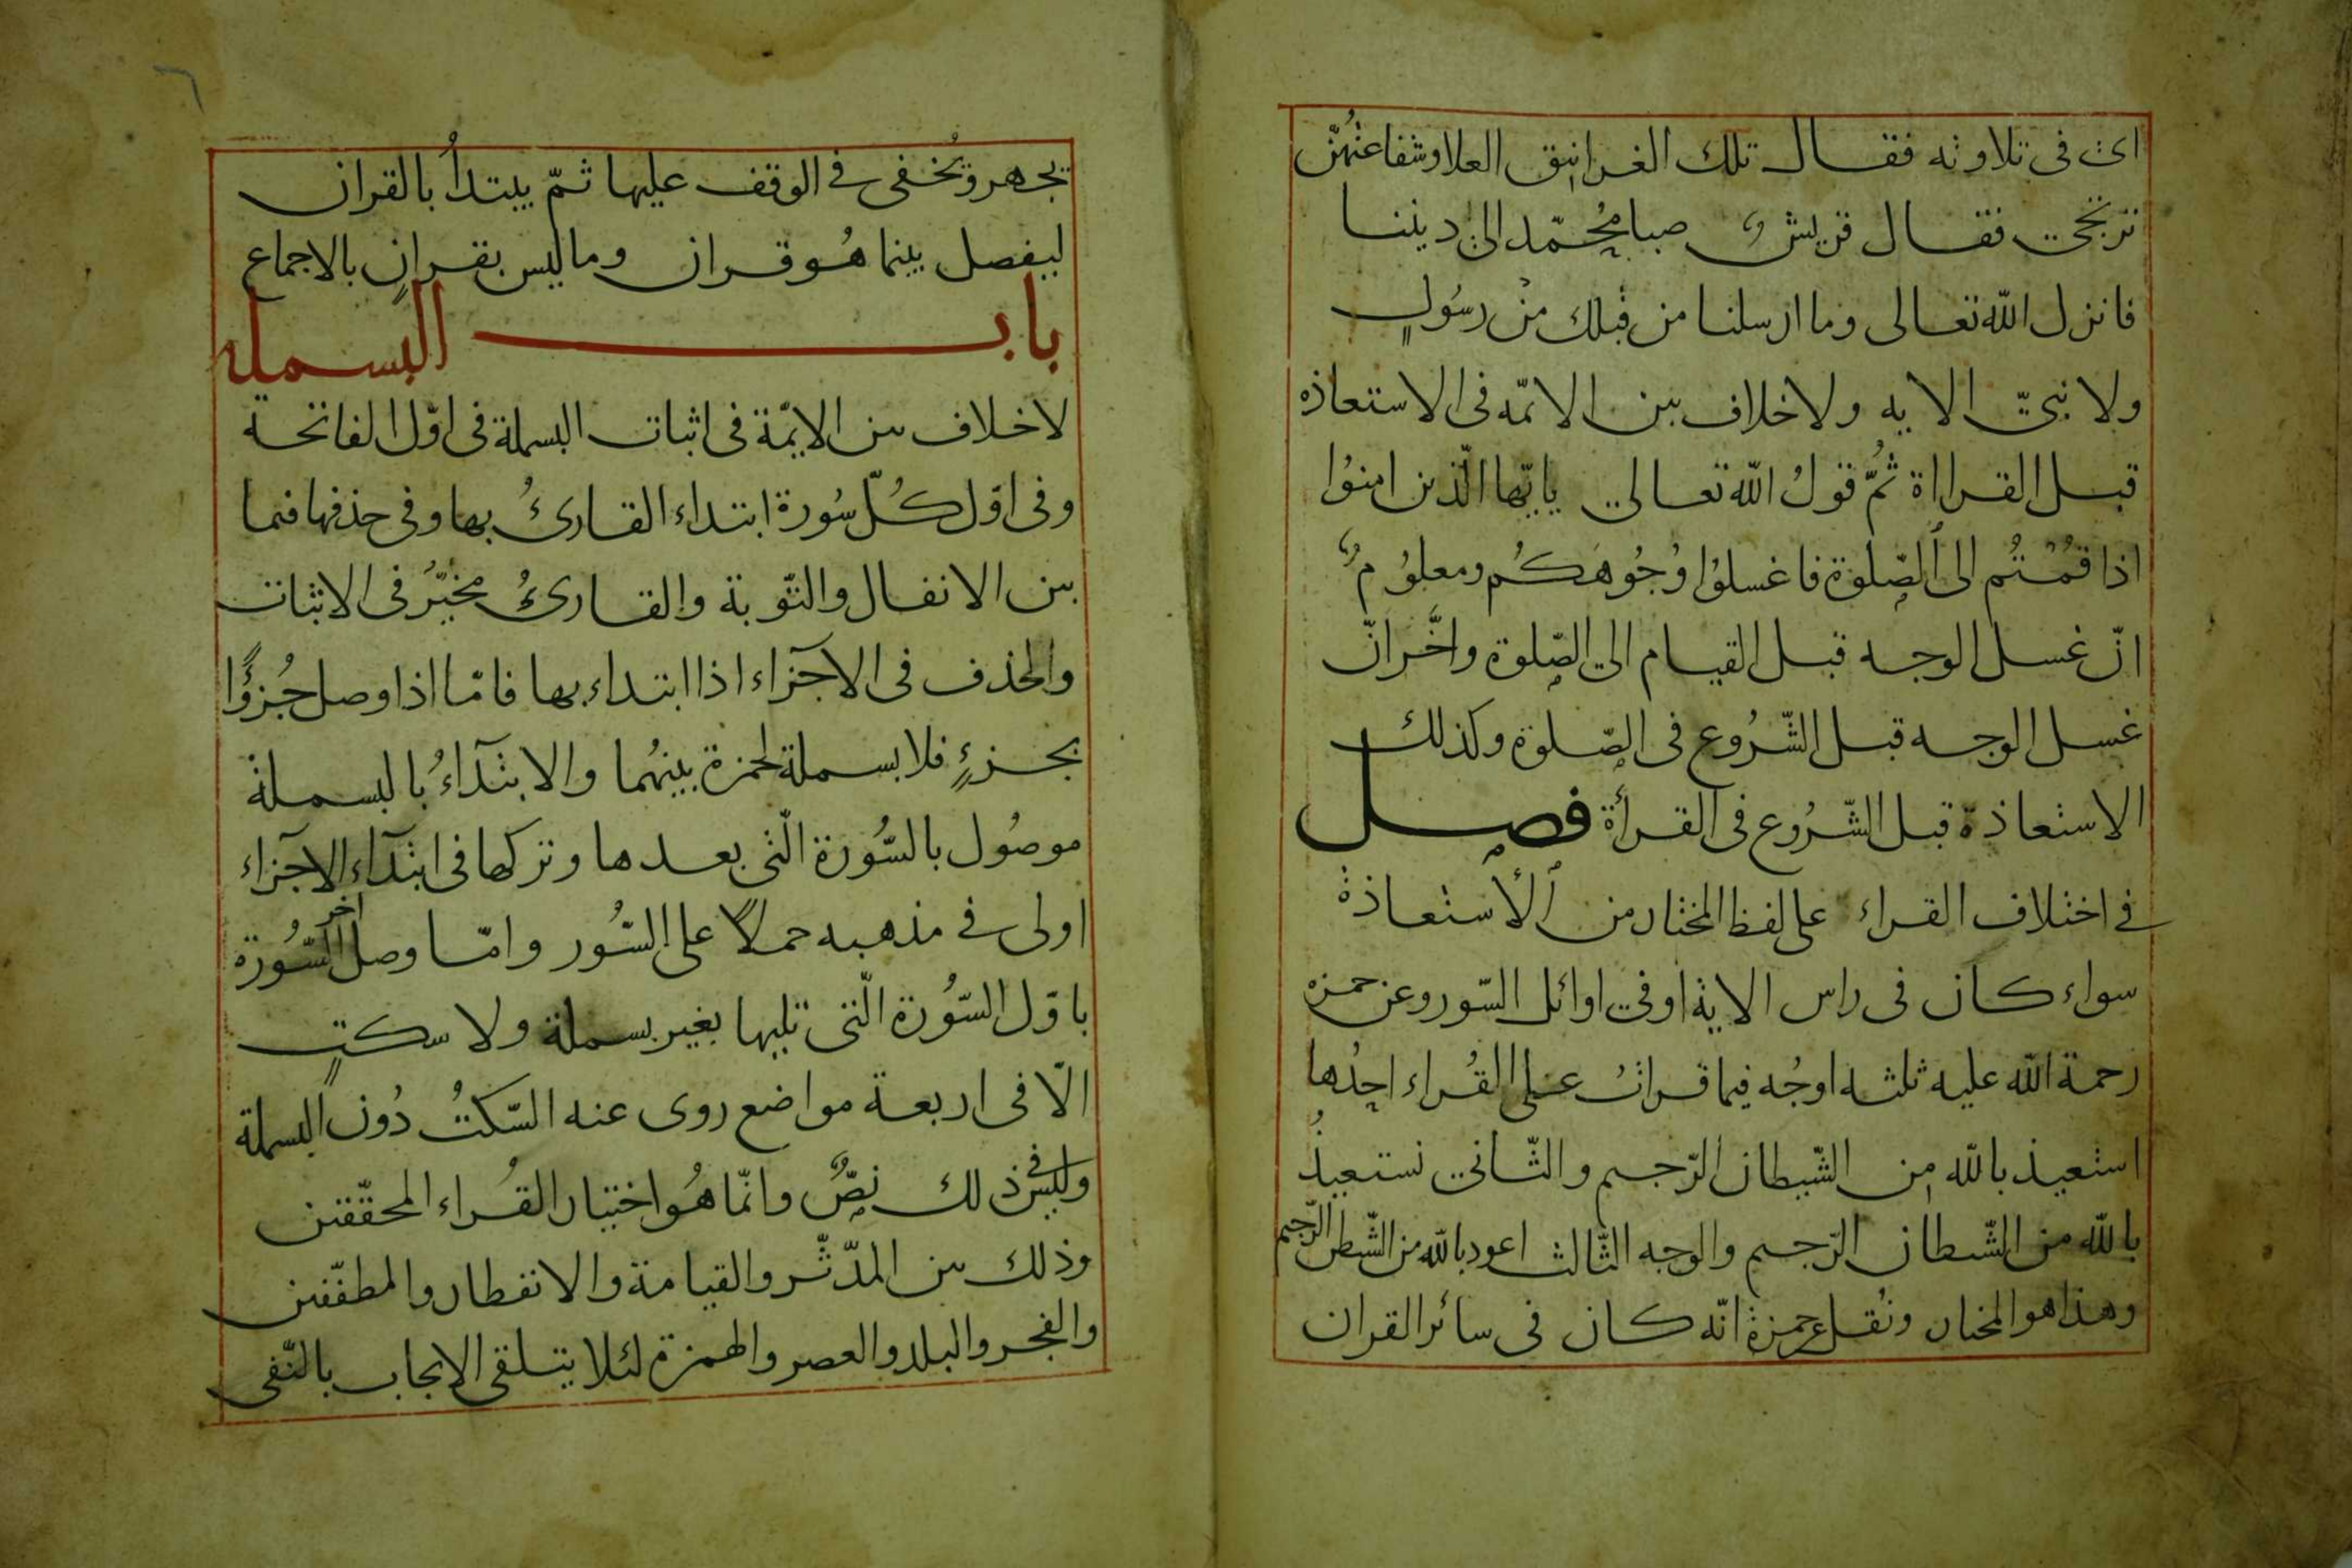 اى فى تلاوته فقال تلك الغرانيق العلا وشفاعتهنّ
ترتجى فقال قريش صبا محمّد الى ديننا
فانزل اللّه تعالى وما ارسلنا من قبلك من رسولٍ
ولا نبىّ الايه ولا خلاف بين الائمّه فى الاستعاذه
قبل القرااة ثُمّ قولُ اللّه تعالى يايّها الّذين امنوُا
اذا قُمْتُم الى الصّلوة فاغسلوُا وُجُوهَكُم ومعلوُمٌ
انّ غسل الوجه قبل القيام الى الصّلوة واخّر انّ
غسل الوجه قبل الشّرُوع فى الصّلوة وكذلك
الاستعاذة قبل الشّرُوع فى القرأة فصل
فى اختلاف القراء على لفظ المختار من الأستعاذة
سواء كان فى راس الاية او فى اوائل السّور وعن حمزه
رحمة اللّه عليه ثلثه اوجُه فيما قراتُ على القُراء احدُها
استعيذ باللّه من الشّيطان الرّجيم والثّانى نستعيذُ
باللّه من الشّيطان الرّجيم والوجه الثّالث اعوذ باللّه من الشّيطن الرّجيم
وهذا هو المختار ونُقل عن حمزة انّه كان فى سائر القران
٦
يجهر ويُخفى فى الوقف عليها ثمّ يبتدأُ بالقران
ليفصل بينما هُو قران وما ليس بقرانٍ بالاجماع
باب البسملة
لا خلاف بين الايمّة فى اثبات البسملة فى اوّل الفاتحة
وفى اوّل كُلّ سُورة ابتداء القارئُ بها وفى حذفها فيما
بين الانفال والتّوبة والقارئُ مخيّرٌ فى الاثبات
والحذف فى الآجزاء اذا ابتداء بها فامّا اذا وصل جُزؤًا
بجزءٍ فلا بسملة لحمزة بينهُما والابتدآءُ بالبسملة
موصُول بالسُّورة الّتى بعدها وتركها فى ابتدآء الآجزاء
اولى فى مذهبه حملاً على السُّور وامّا وصل اخر السُّورة
باوّل السُّورة الّتى تليها بغير بسملة ولا سكتٍ
الّا فى اربعة مواضع روى عنه السّكتُ دُون البسملة
وليس فى ذلك نصٌّ وانّما هُو اختيار القُراء المحقّقين
وذلك بين المدّثّر والقيامة والانفطار والمطفّفين
والفجر والبلد والعصر والهمزة لئلا يتلقى الايجاب بالنّفى